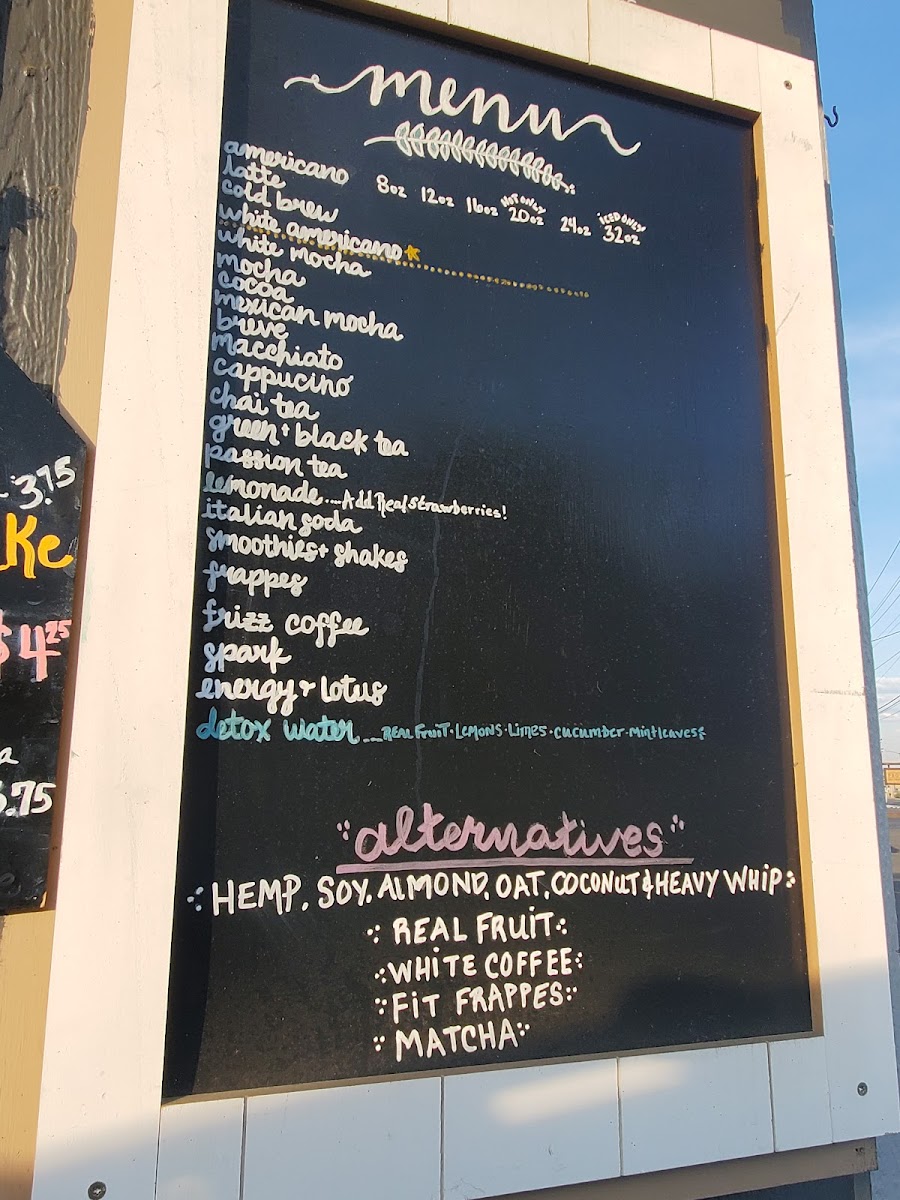 menu
8oz 12oz 16oz HOT ONLY 20oz 24oz ICED ONLY 32oz
americano
latte
cold brew
white americano
white mocha
mocha
cocoa
mexican mocha
breve
macchiato
cappucino
chai tea
green + black tea
passion tea
lemonade ... Add Real Strawberries!
italian soda
smoothies + shakes
frappes
frizz coffee
spark
energy + lotus
detox water ... REAL FRUIT · LEMONS · LIMES · CUCUMBER · Mint leaves
"alternatives"
HEMP. SOY. ALMOND. OAT. COCONUT & HEAVY WHIP
REAL FRUIT
WHITE COFFEE
FIT FRAPPES
MATCHA
3.75
Ke
$4.25
a
.75